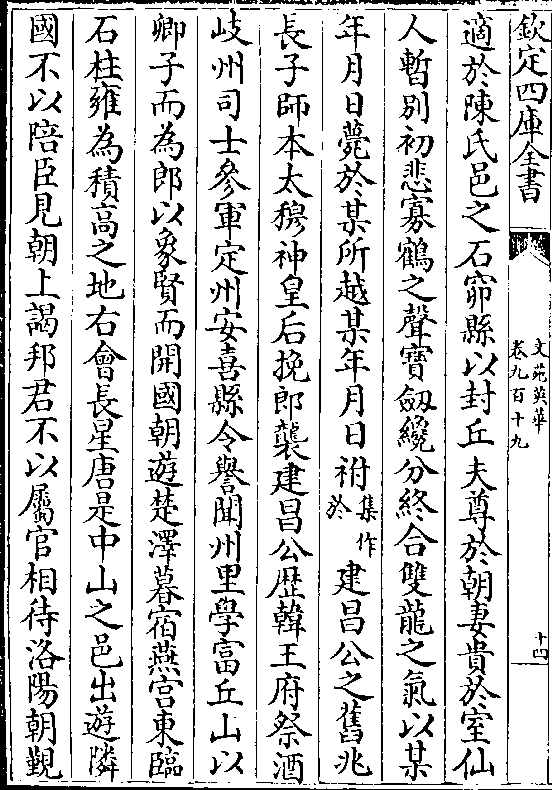 欽定四庫全書
文苑英華
卷九百十九
十四
適於陳氏邑之石窌縣以封丘夫尊於朝妻貴於室仙
人暫别初悲寡鶴之聲寶劔纔分終合雙龍之氣以某
年月日薨於某所越某年月日祔集作於建昌公之舊兆
長子師本太穆神皇后挽郎襲建昌公歴韓王府祭酒
岐州司士參軍定州安喜縣令譽聞州里學富丘山以
卿子而為郎以象賢而開國朝遊楚澤暮宿燕宫東臨
石柱雍為積高之地右會長星唐是中山之邑出遊隣
國不以陪臣見朝上謁邦君不以屬官相待洛陽朝覲